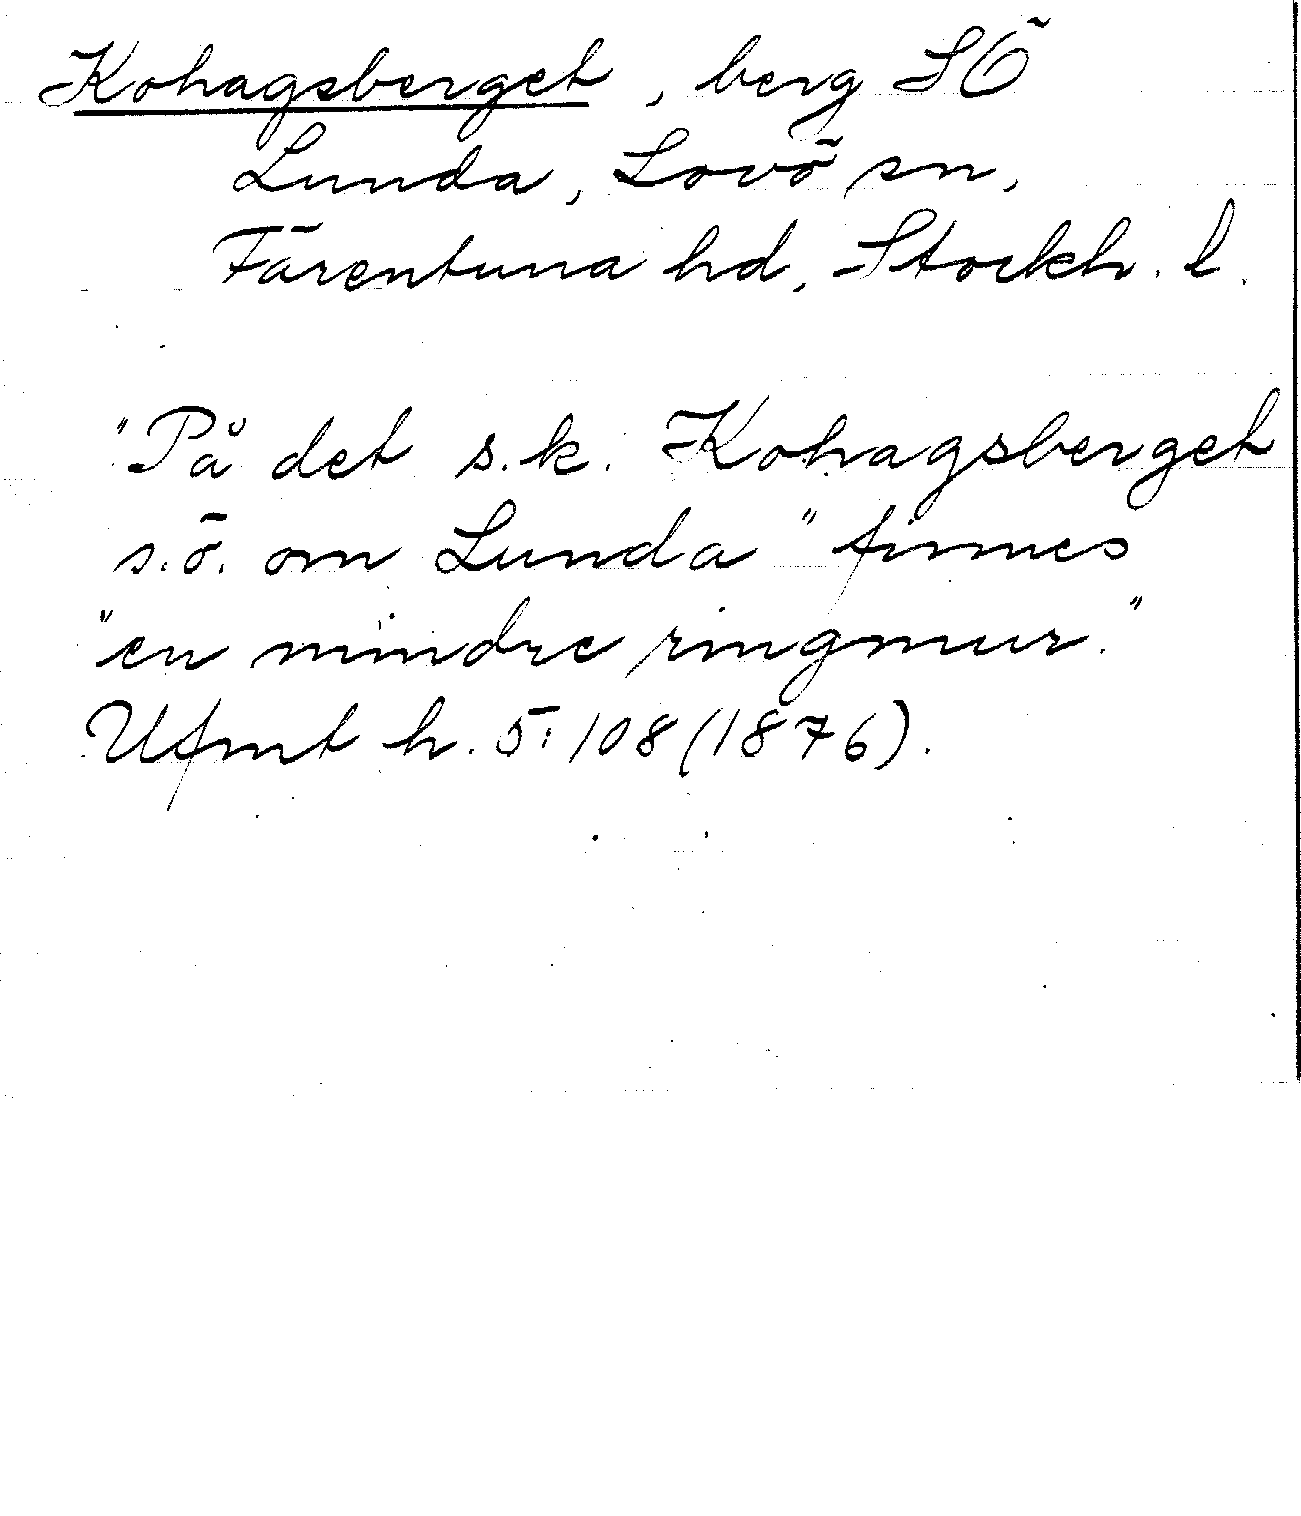 Kohagsberget, berg SÖ
Lunda, Lovö sn,
Färentuna hd, Stockh. l.
"På det s.k. Kohagsberget
s.ö. om Lunda" finnes
"en mindre ringmur."
Ufmt h. 5: 108 (1876).